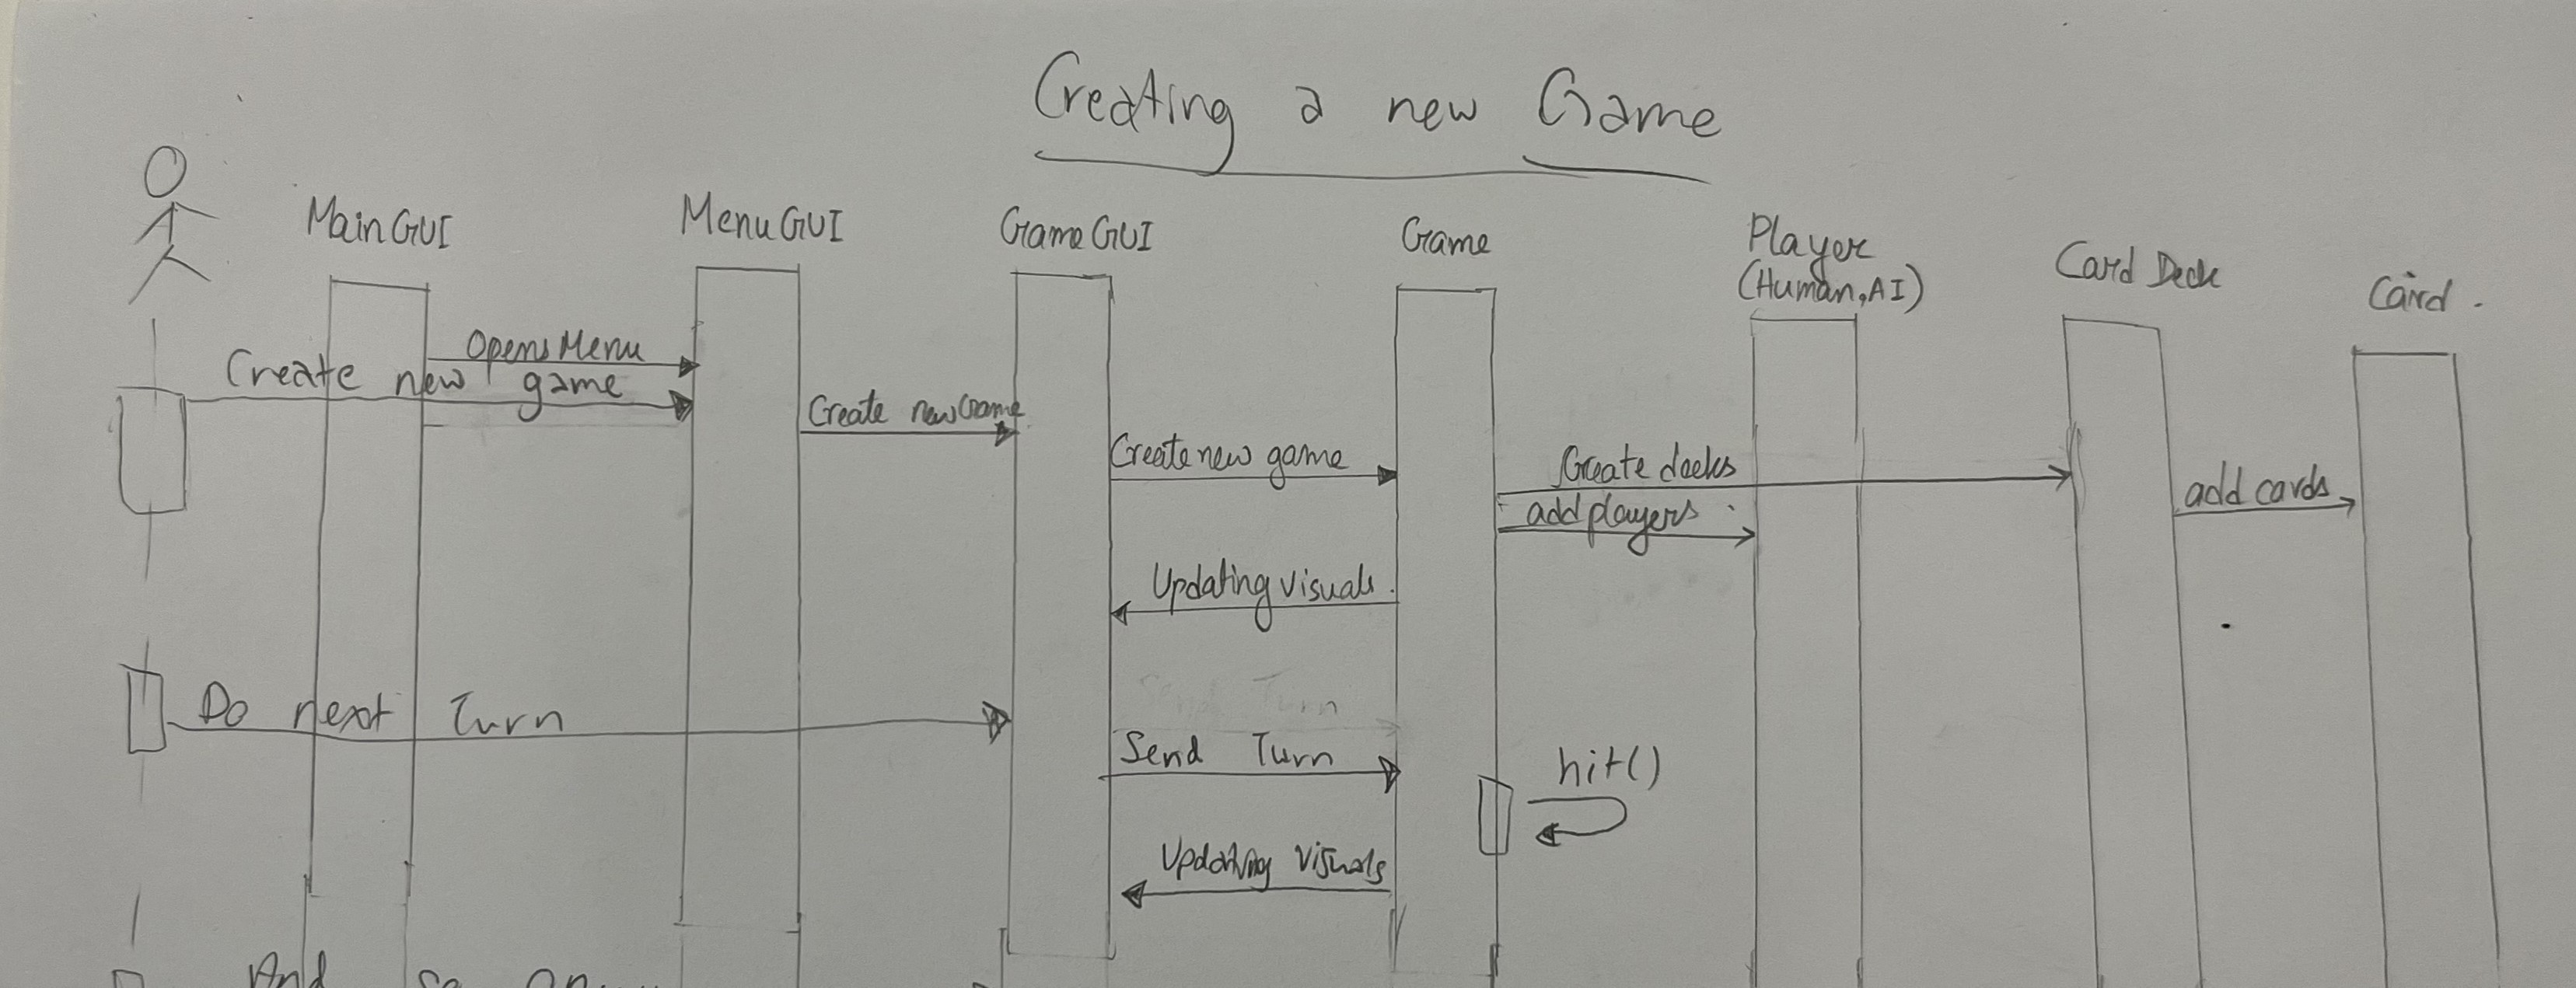 Creating a new Game
MainGUI
MenuGUI
GameGUI
Game
Player
(Human, AI)
Card Deck
Card.
Opens Menu
Create new game
Create newGame
Create new game
Create decks
add cards
add players
Updating visuals.
Do next Turn
Send Turn
hit()
Updating visuals
And so on